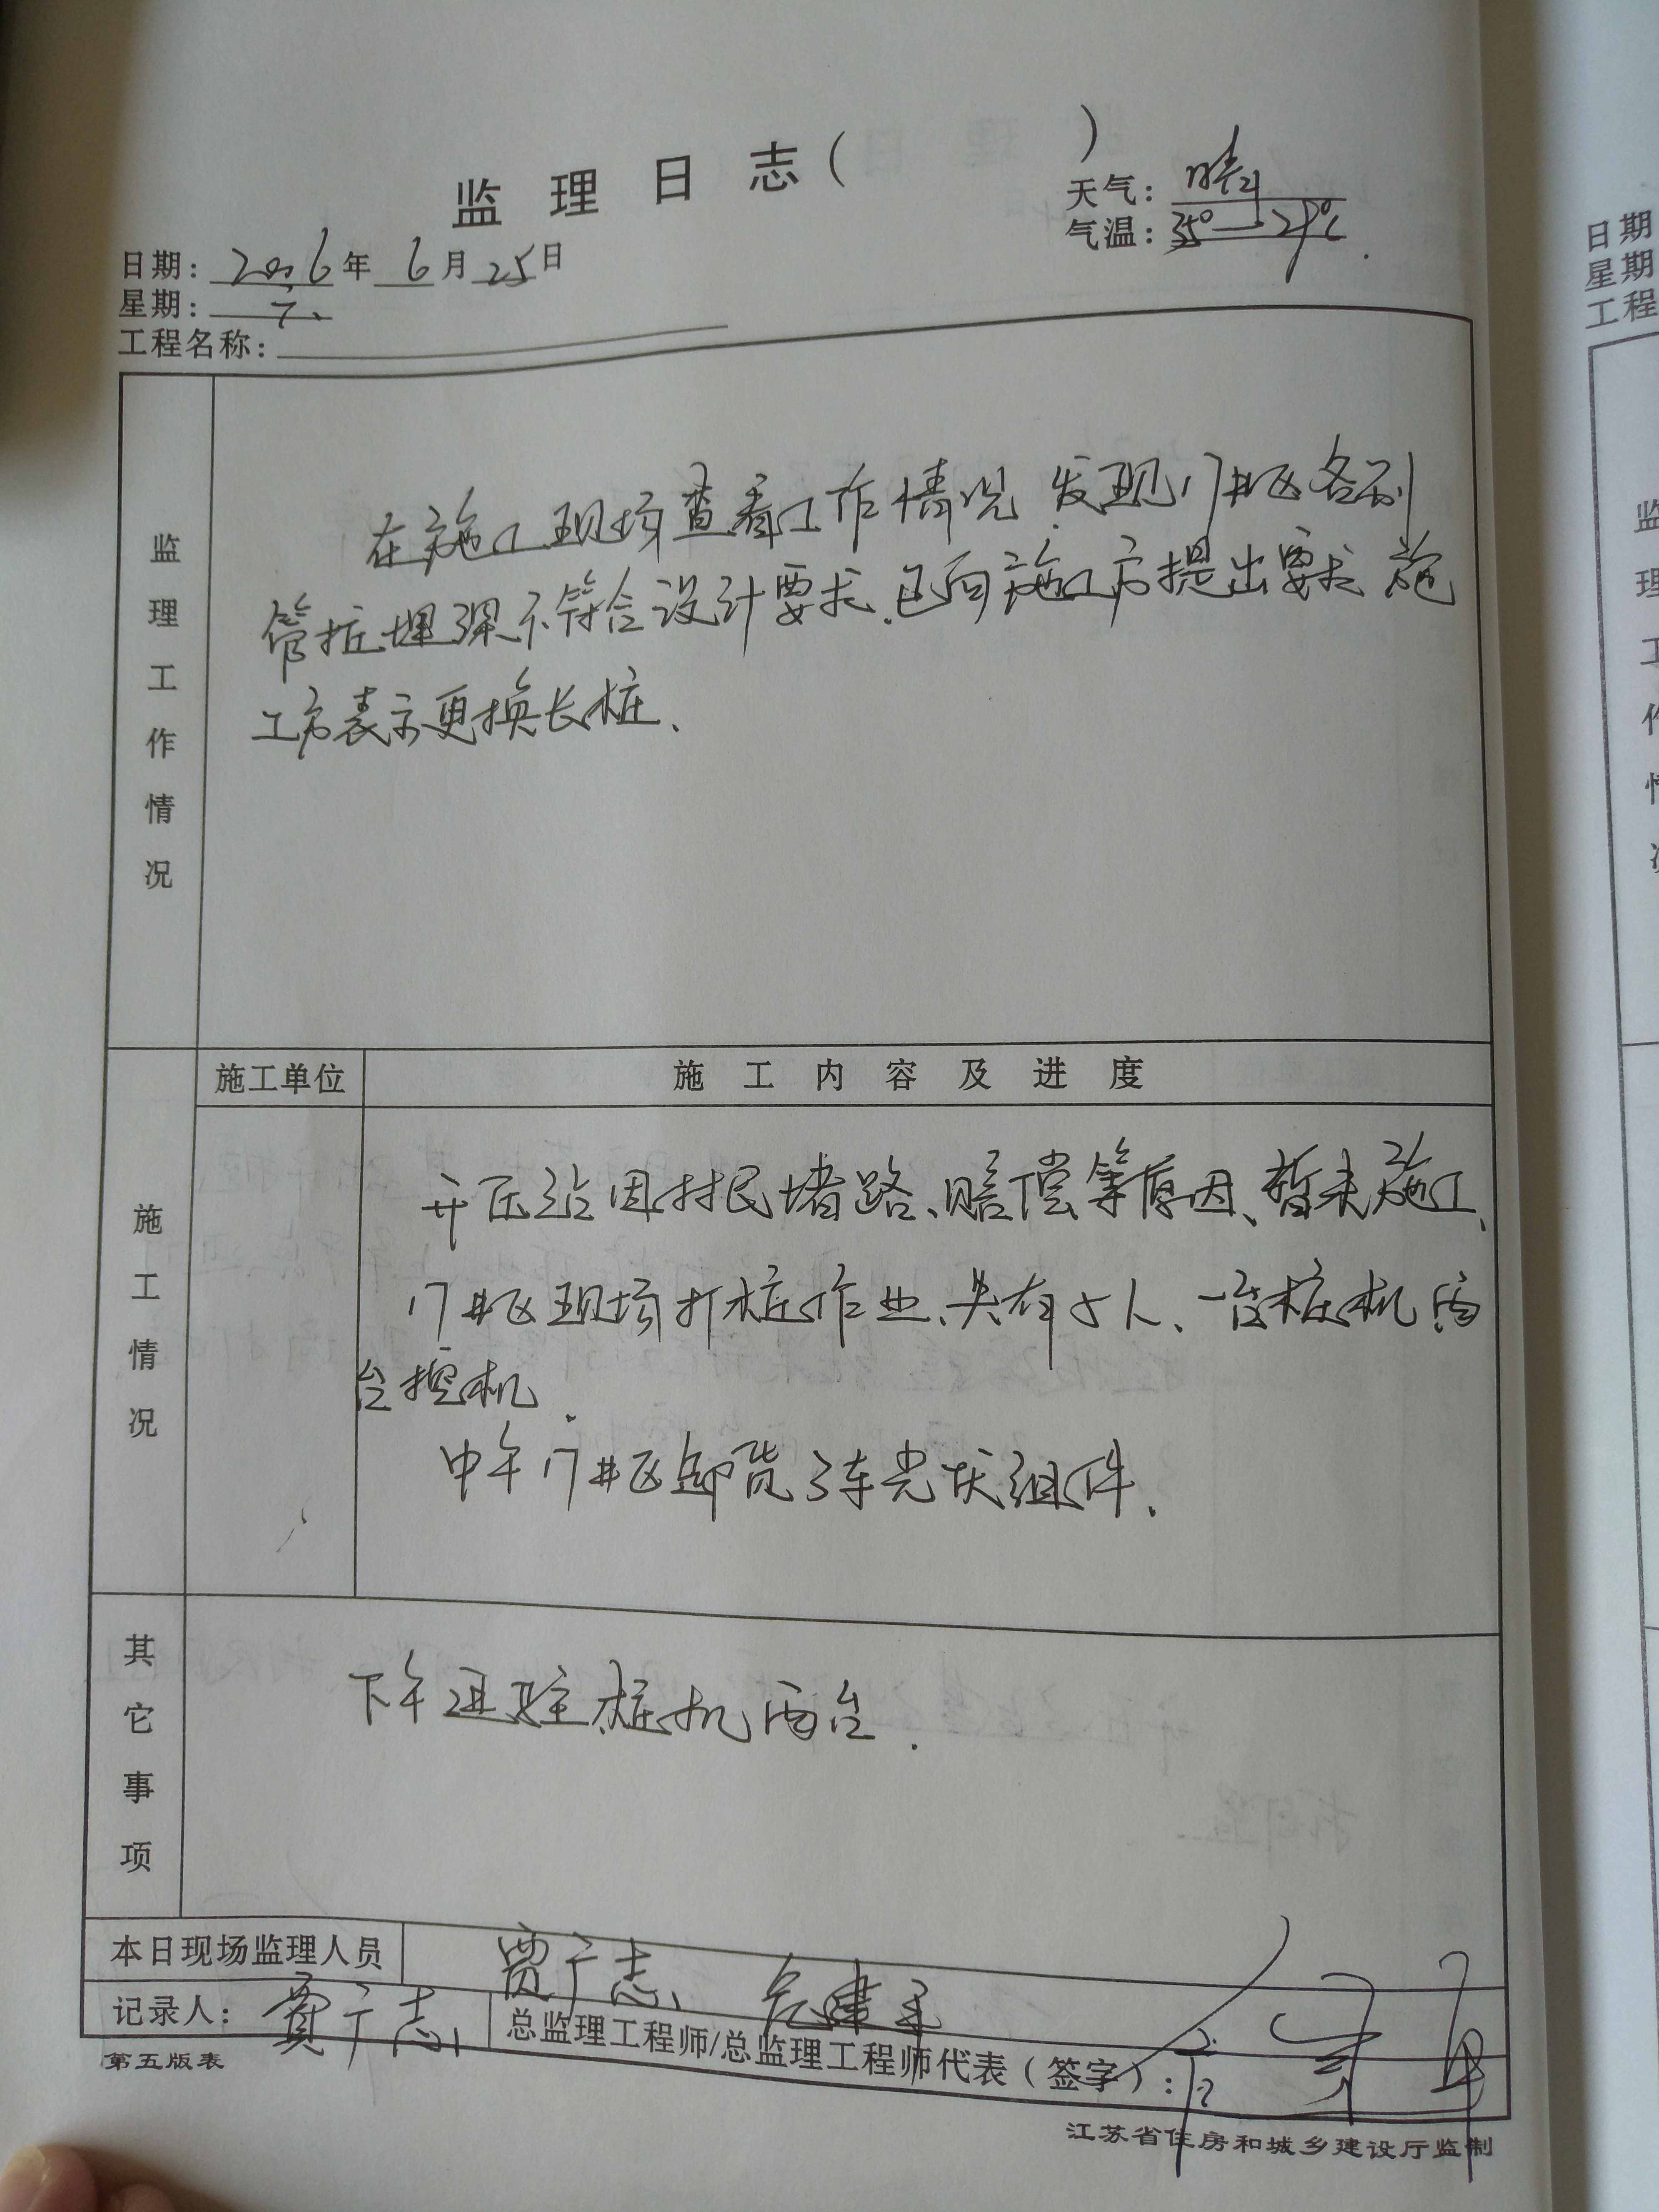 监理日志（ ）
天气：晴
气温：35°—27℃
日期：2016年6月25日
星期：六
工程名称：
监理工作情况
在施工现场查看工作情况，发现17#区各别
管桩埋深不符合设计要求，已向施工方提出要求，施
工方表示更换长桩.
施工单位
施工内容及进度
施工情况
升压站因村民堵路、赔偿等原因、暂未施工、
17#区现场打桩作业、共有5人、一台桩机 两
台挖机.
中午17#区卸货3车光伏组件.
其它事项
下午进驻桩机两台.
本日现场监理人员
贾广志、
记录人：贾广志
总监理工程师/总监理工程师代表（签字）：
第五版表
江苏省住房和城乡建设厅监制
日期
星期
工程